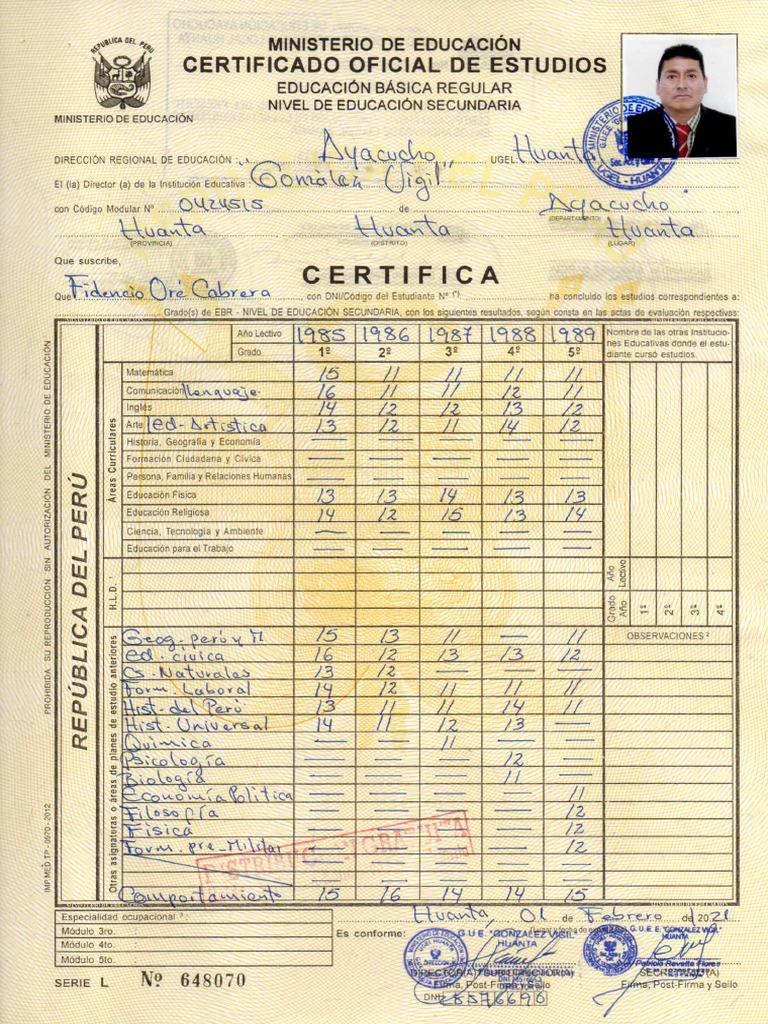 REPUBLICA DEL PERÚ
MINISTERIO DE EDUCACIÓN
MINISTERIO DE EDUCACIÓN
CERTIFICADO OFICIAL DE ESTUDIOS
EDUCACIÓN BÁSICA REGULAR
NIVEL DE EDUCACIÓN SECUNDARIA
DIRECCIÓN REGIONAL DE EDUCACIÓN: Ayacucho UGEL: Huanta
UGEL - HUANTA
El (la) Director (a) de la Institución Educativa: "González Vigil"
con Código Modular Nº 0424515 de Ayacucho
(DEPARTAMENTO)
Huanta Huanta Huanta
(PROVINCIA) (DISTRITO) (LUGAR)
Que suscribe,
CERTIFICA
Que Fidencio Oré Cabrera, con DNI/Código del Estudiante Nº (*) ha concluido los estudios correspondientes a:
Grado(s) de EBR - NIVEL DE EDUCACIÓN SECUNDARIA, con los siguientes resultados, según consta en las actas de evaluación respectivas:
Año Lectivo 1985 1986 1987 1988 1989 Nombre de las otras Instituciones Educativas donde el estudiante cursó estudios.
Grado 1º 2º 3º 4º 5º
Áreas Curriculares
Matemática 15 11 11 11 11
Comunicación/Lenguaje 16 11 11 12 11
Inglés 14 12 12 13 12
Arte/ed-Artistica 13 12 11 14 12
Historia, Geografía y Economía — — — — —
Formación Ciudadana y Cívica — — — — —
Persona, Familia y Relaciones Humanas — — — — —
Educación Física 13 13 14 13 13
Educación Religiosa 14 12 15 13 14
Ciencia, Tecnología y Ambiente — — — — —
Educación para el Trabajo — — — — —
H.L.D. ¹
Año Lectivo
Grado Año 1º 2º 3º 4º
OBSERVACIONES ²
Otras asignaturas o áreas de planes de estudio anteriores
Geog. perú y M 15 13 11 — 11
ed. cívica 16 12 13 13 12
Cs. Naturales 13 12 — — —
Form. Laboral 14 12 11 11 11
Hist. del Perú 13 11 11 14 11
Hist. Universal 14 11 12 13 —
Quimica — — 11 — —
Psicología — — — 12 —
Biología — — — 11 —
Economía Política — — — — 11
Filosofía — — — — 12
Física — — — — 12
Form. pre-Militar — — — — 12
Comportamiento 15 16 14 14 15
REPÚBLICA DEL PERÚ
PROHIBIDA SU REPRODUCCIÓN SIN AUTORIZACIÓN DEL MINISTERIO DE EDUCACIÓN
IMP.MED.TP - 0970 - 2012
Huanta, 01 de Febrero de 2021
Especialidad ocupacional ³:
Módulo 3ro.
Módulo 4to.
Módulo 5to.
Es conforme:
G.U.E. "GONZALEZ VIGIL"
HUANTA
G.U.E. E. "GONZALEZ VIGIL"
HUANTA
SECRETARIO(A)
Firma, Post-Firma y Sello
Firma, Post-Firma y Sello
DNI: 28576690
SERIE L Nº 648070